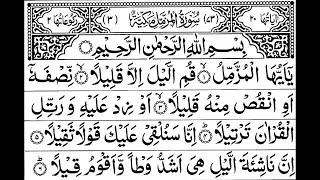 اٰيَاتُهَا ٢٠ (٧٣) سُوْرَةُ الْمُزَّمِّلِ مَكِّيَّةٌ (٣) رُكُوْعَاتُهَا ٢
بِسْمِ اللهِ الرَّحْمٰنِ الرَّحِيْمِ
يٰۤاَيُّهَا الْمُزَّمِّلُ ۙ﴿١﴾ قُمِ الَّيْلَ اِلَّا قَلِيْلًا ۙ﴿٢﴾ نِّصْفَهٗۤ
اَوِ انْقُصْ مِنْهُ قَلِيْلًا ۙ﴿٣﴾ اَوْ زِدْ عَلَيْهِ وَ رَتِّلِ
الْقُرْاٰنَ تَرْتِيْلًا ؕ﴿٤﴾ اِنَّا سَنُلْقِيْ عَلَيْكَ قَوْلًا ثَقِيْلًا ﴿٥﴾
اِنَّ نَاشِئَةَ الَّيْلِ هِيَ اَشَدُّ وَطْاً وَّ اَقْوَمُ قِيْلًا ؕ﴿٦﴾